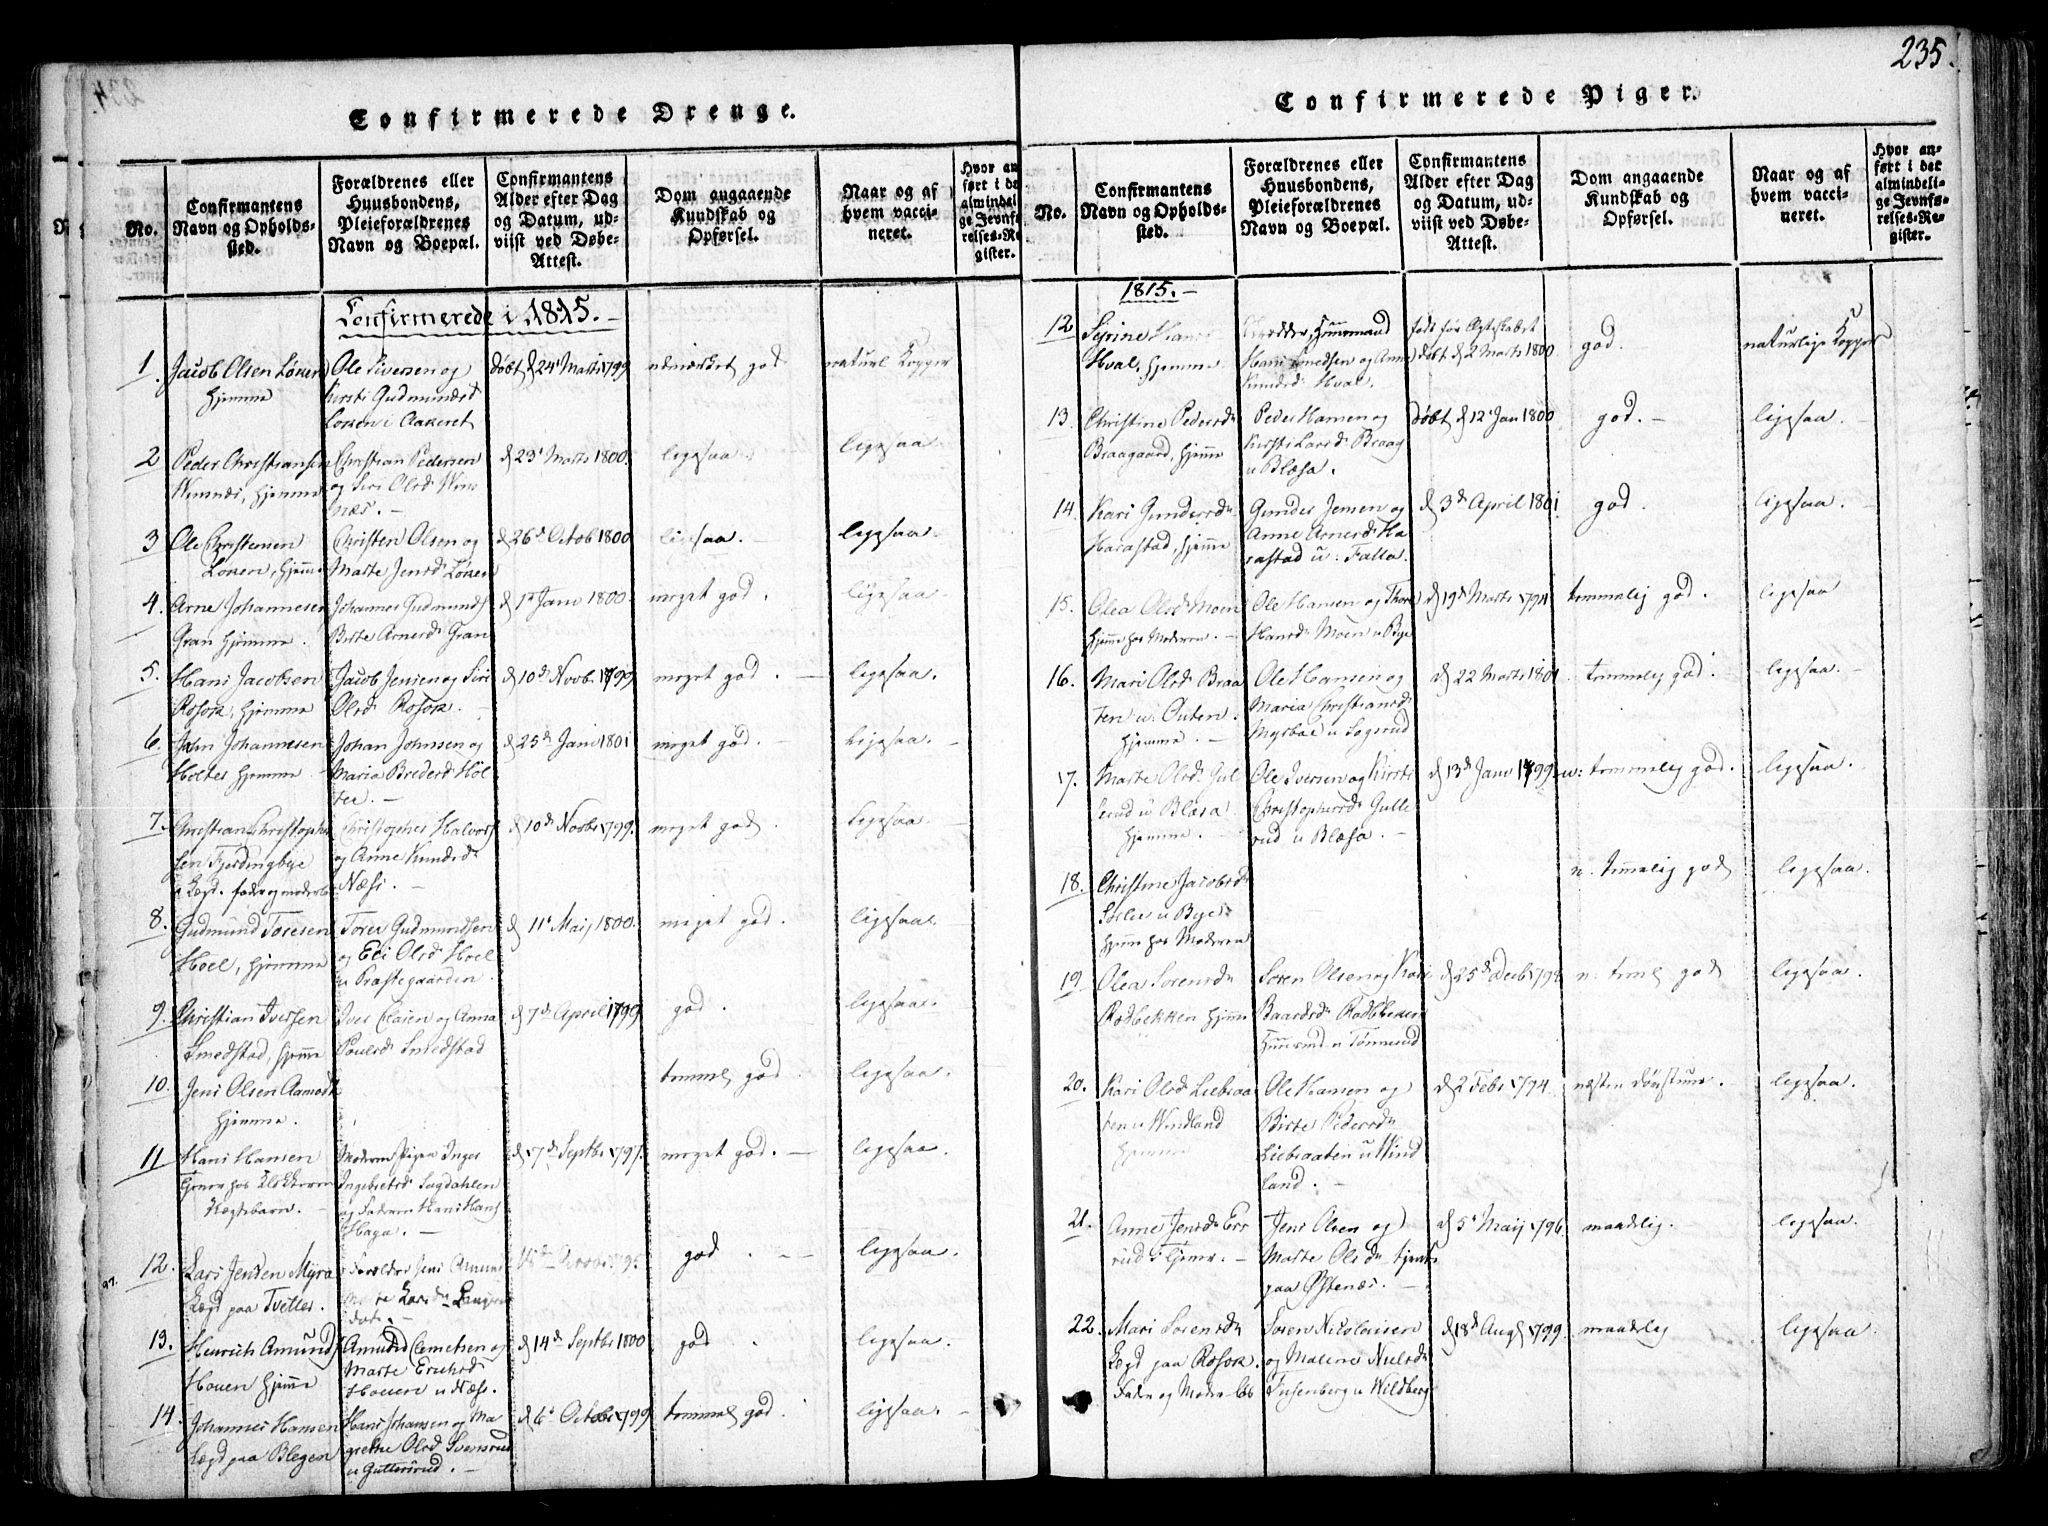 235.
Confirmerede Drenge.
No.
Confirmantens
Navn og Opholds-
sted.
Forældrenes eller
Huusbondens,
Pleieforældrenes
Navn og Boepæl.
Confirmantens
Alder efter Dag
og Datum, ud-
viist ved Døbe-
Attest.
Dom angaaende
Kundskab og
Opførsel.
Naar og af
hvem vacci-
neret.
Hvor an
ført i de
almindel
ge Jevnf
relses-R
gister.
Confirmerede i 1815.-
1. Jacob Olsen Löken
hjemme
Ole Siversen og
Kirsti Gudmundsd
Löken i Aakeret
döbt d 24 Marti 1799
udmærket god
naturl Kopper
2 Peder Christiansen
Wennæs, hjemme
Christian Pedersen
og Siri Olsd Wen
næs.-
d 23 Marts 1800.
ligesaa.
ligesaa.
3 Ole Christensen
Löken, hjemme
Christen Olsen og
Marte Jensd Löken
d 26d Octob 1800
ligesaa.
ligesaa.
4. Arne Johannesen
Gran hjemme.
Johannes Gudmunds
Birte Arnesd Gran
d 1ste Janu 1800.
meget god.
ligesaa.
5. Hans Jacobsen
Rosok, hjemme
Jacob Jensen og Siri
Olsd Rosok.
d 10d Novb. 1799
meget god.
ligesaa.
6. John Johannesen
Holter hjemme
Johan Johnsen og
Maria Bredesd Hol
ter.-
d 25d Janu 1801
meget god.
ligesaa.
7. Christian Christophe
sen Fjerdingbye
Lægd. fader og moderlös
Christopher Halvors
og Anne Knudsd
Næss.-
d 10d Novbr 1799.
meget god.
ligesaa.
8. Gudmund Toresen
Hoel, hjemme
Tores Gudmundsen
og Eli Olsd Hoel
u Præstegaarden
d 11t Maij 1800.
meget god.
ligesaa.
9. Christian Iversen
Smedstad, hjemme
Iver Clasen og Anna
Poulsd Smedstad
d 7d April 1799
god.
ligesaa.
10. Jens Olsen Aamodt
hjemme.
temmel god.
ligesaa.
11 Hans Hansen
Lægdebarn.-
Moderen Pigen Inger
Ingebretsd Sagdahlen
og Faderen Hans Hans
Haga.-
d 17d Septbr 1797.
meget god.-
ligesaa.
12. Lars Jensen Myra
Lægd paa Tvetter.
god.
ligesaa.
13. Henrich Amunds
Hauen hjemme
Amund Clemetsen og
Marte Erichsd
Hauen u Næss.
d 14d Septbr 1800
god.
ligesaa.-
14. Johannes Hansen
Lægd paa Blegen
Hans Johansen og Ma
grethe Olsd Svensrud
u Gutterörud.-
d 6t Octobr 1799
temmel god.
ligesaa.
Confirmerede Piger.
No.
Confirmantens
Navn og Opholds-
sted.
Forældrenes eller
Huusbondens,
Pleieforældrenes
Navn og Boepæl.
Confirmantens
Alder efter Dag
og Datum, ud-
viist ved Døbe-
Attest.
Dom angaaende
Kundskab og
Opførsel.
Naar og af
hvem vacci-
neret.
Hvor an-
ført i det
almindeli-
ge Jevnfø-
relses-Re-
gister.
1815.-
12 Syrine Hans
Hval, hjemme
Hans Smedsen og Anne
Knudsd Hval.
født før Ægteskabet
döbt d 2 Marts 1800
god.
naturlige Kopper
13. Christine Pedersd
Braagaard, hjemme
Peder Hansen og
Kirsti Larsd Braag
u Blæsa.
döbt d 12t Jan 1800
god.-
ligesaa.
14. Kari Gundersd
Harastad, hjemme
Gunder Jensen og
Anne Arnesd Ha
rastad u: Falla.
d 3d April 1801.
god.
ligesaa.
15. Olea Olsd Moen
hjemme hos Moderen.-
Ole Hansen og Thore
Hansd Moen u Bye
d 19d Marts 1794
temmelig god.
ligesaa
16. Mari Olsd Braa
ten u. Outen.
hjemme.-
Ole Hansen og
Maria Christiansd
Myrbøe u Løgsrud
d 22 Marts 1801
temmelig god
ligesaa.
17. Marte Olsd Gul
lerud u Blæsa
hjemme.-
Ole Iversen og Kirsti
Christophersd Gulle
rud u Blæsa.-
d 13d Janu 1799
u: temmelig god.
ligesaa.
18. Christine Jacobsd
Sørlie u Bye
hjemme hos Moderen
u. temmelig god
ligesaa.
19 Olea Sorensd
Rodbekken hjemme
Soren Olsen og Kari
Baardsd Rodbekken
Huusmd u Tonnerud
d 25d Decb 1798
u: teml god
ligesaa.
20. Kari Olsd Liebraa
ten u Windland
hjemme
Ole Hansen og
Birte Pedersd
Liebraaten u Wind
land.-
d 2 Febr 1794.
næsten dövstum.
ligesaa.
21. Anne Jensd Err
rud i tjeneste.-
Jens Olsen og
Marte Olsd tjener
paa Østenæs.-
d 5t Maij 1796
maadelig.
ligesaa.
22. Mari Sorensd
Lægd paa Rosok.
Fader og Moder lös
Soren Nicolaisen
og Malene Nielsd
Fusenberg u Wildberg
d 18d Aug 1799.
maadelig
ligesaa.